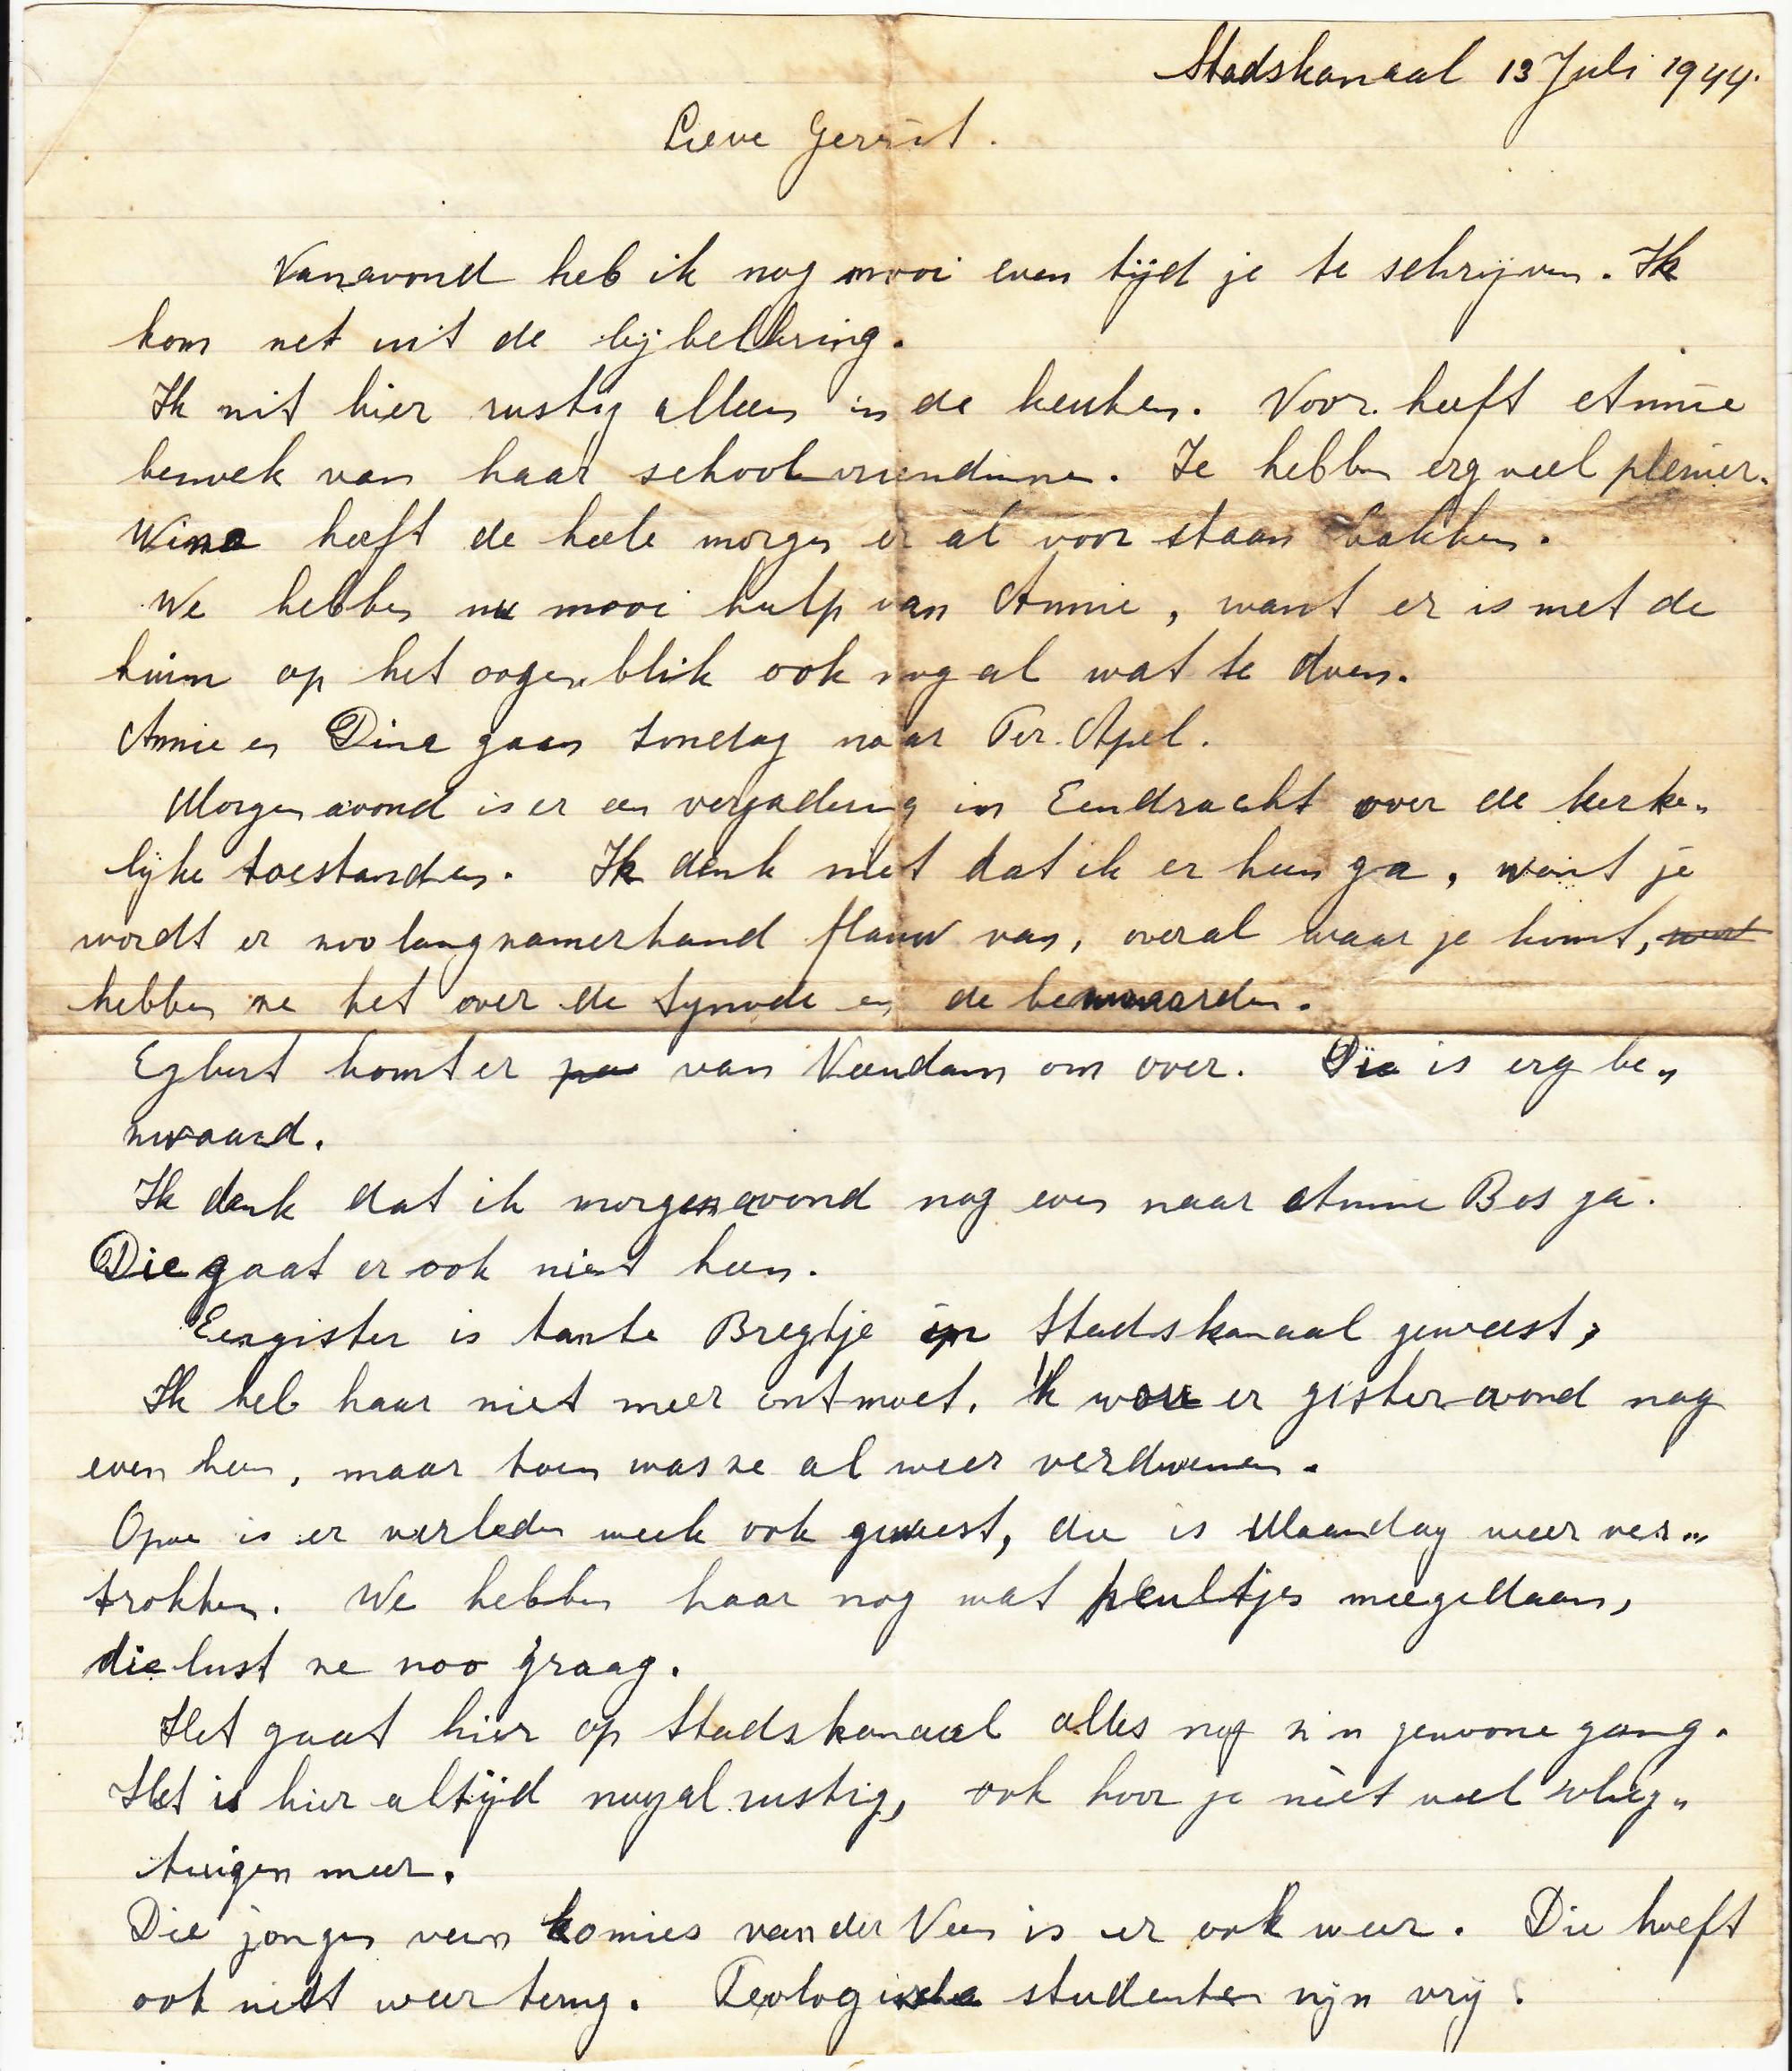 Stadskanaal 13 Juli 1944.
Lieve Gerrit.
Vanavond heb ik nog mooi even tijd je te schrijven. Ik
kom net uit de bijbellering.
Ik zit hier rustig alleen in de keuken. Voor heeft Annie
bezoek van haar schoolvriendinnen. Ze hebben erg veel plezier.
Wina heeft de heele morgen er al voor staan bakken.
We hebben nu mooi hulp van Annie, want er is met de
tuin op het oogenblik ook nog al wat te doen.
Annie en Dina gaan Zondag naar Ter. Apel.
Morgenavond is er een vergadering in Eendracht over de kerke„
lijke toestanden. Ik denk niet dat ik er heen ga, want je
wordt er zoo langzamerhand flauw van, overal waar je komt,
hebben ze het over de Synode en de bezwaarden.
Egbert komt er van Veendam om over. Die is erg be„
zwaard.
Ik denk dat ik morgenavond nog even naar Annie Bos ga.
Die gaat er ook niet heen.
Eergister is tante Bregtje in Stadskanaal geweest,
Ik heb haar niet meer ontmoet. Ik wou er gisteravond nog
even heen, maar toen was ze al weer verdwenen.
Opoe is er verleden week ook geweest, die is Maandag weer ver„
trokken. We hebben haar nog wat peultjes meegedaan,
die lust ze zoo graag.
Het gaat hier op Stadskanaal alles nog z'n gewone gang.
Het is hier altijd nogal rustig, ook hoor je niet veel vlieg„
tuigen meer.
Die jongen van komies van der Veen is er ook weer. Die hoeft
ook niet weer terug. Teologische studenten zijn vrij.